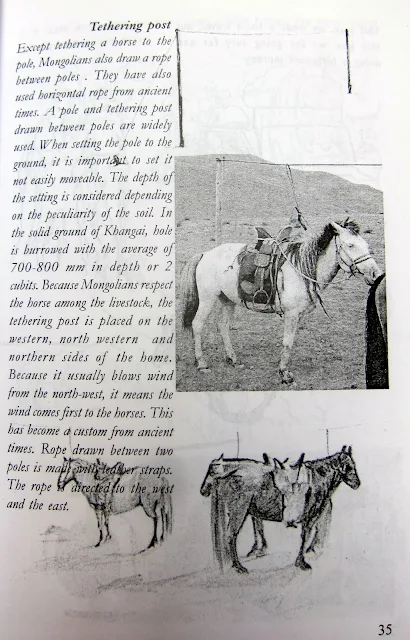 Tethering post
Except tethering a horse to the
pole, Mongolians also draw a rope
between poles . They have also
used horizontal rope from ancient
times. A pole and tethering post
drawn between poles are widely
used. When setting the pole to the
ground, it is important to set it
not easily moveable. The depth of
the setting is considered depending
on the peculiarity of the soil. In
the solid ground of Khangai, hole
is burrowed with the average of
700-800 mm in depth or 2
cubits. Because Mongolians respect
the horse among the livestock, the
tethering post is placed on the
western, north western and
northern sides of the home.
Because it usually blows wind
from the north-west, it means the
wind comes first to the horses. This
has become a custom from ancient
times. Rope drawn between two
poles is made with leather straps.
The rope is directed to the west
and the east.
35